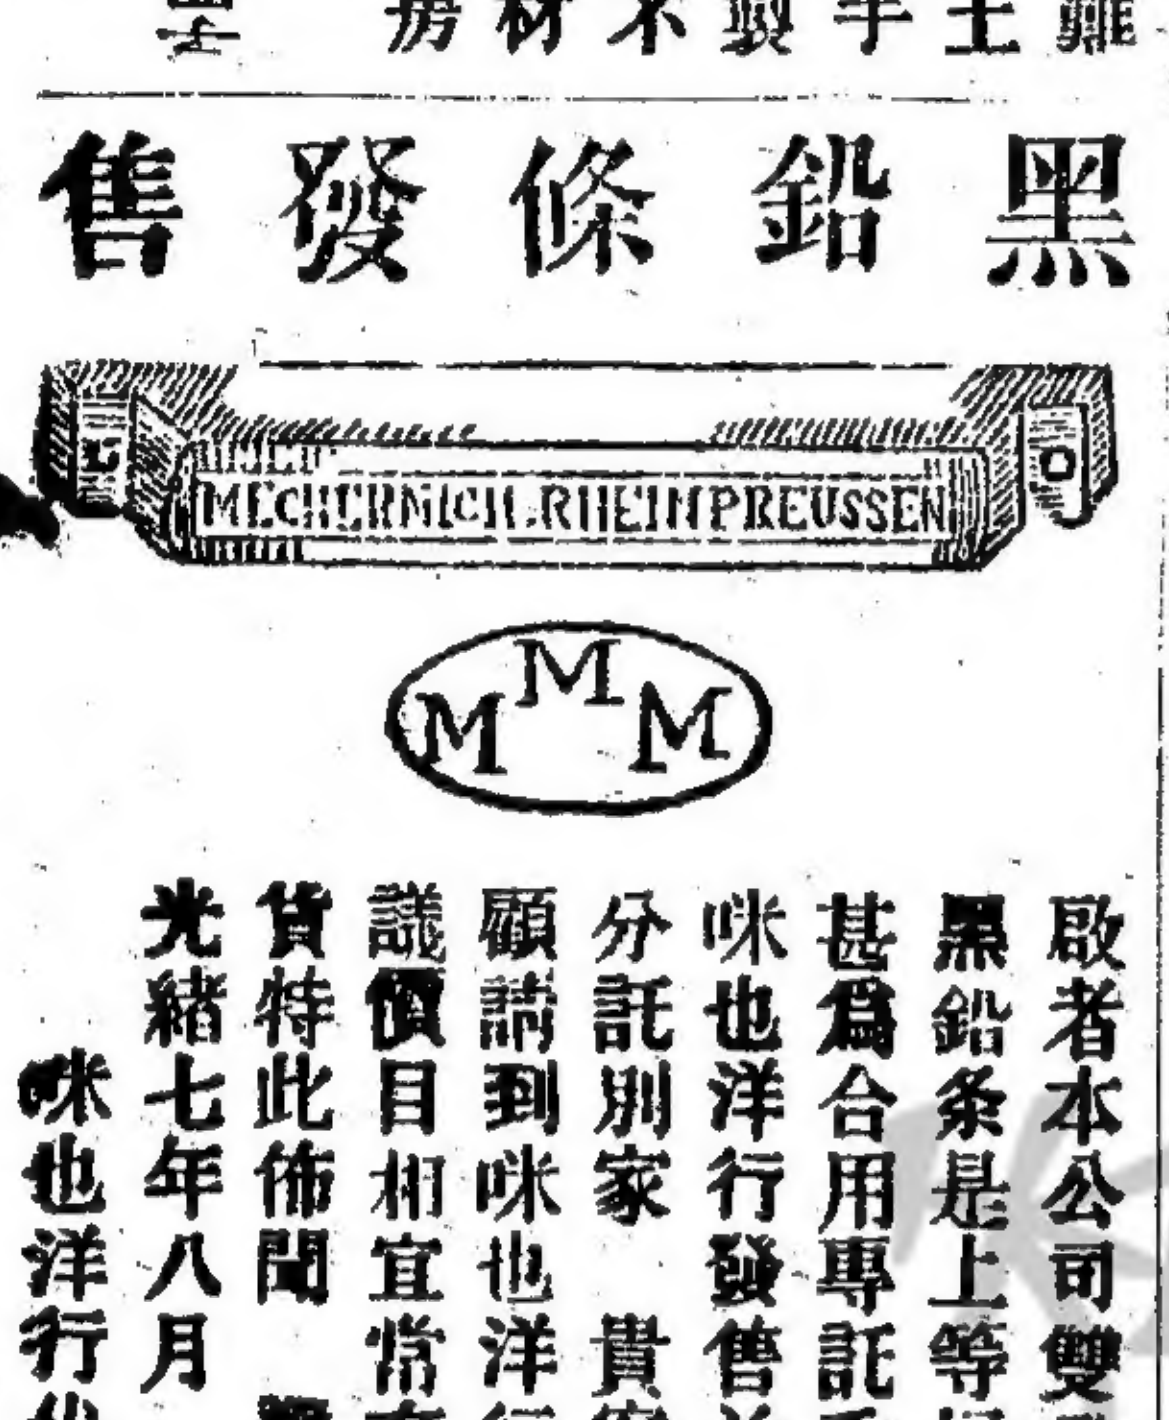 黑鉛條發售
MECHERNICH.RHEINPREUSSEN
MMM
啟者本公司雙
黑鉛条是上等
甚爲合用專託
咪也洋行發售
分託別家 貴
顧請到咪也洋
議價目相宜常
貨特此佈聞
光緒七年八月
咪也洋行